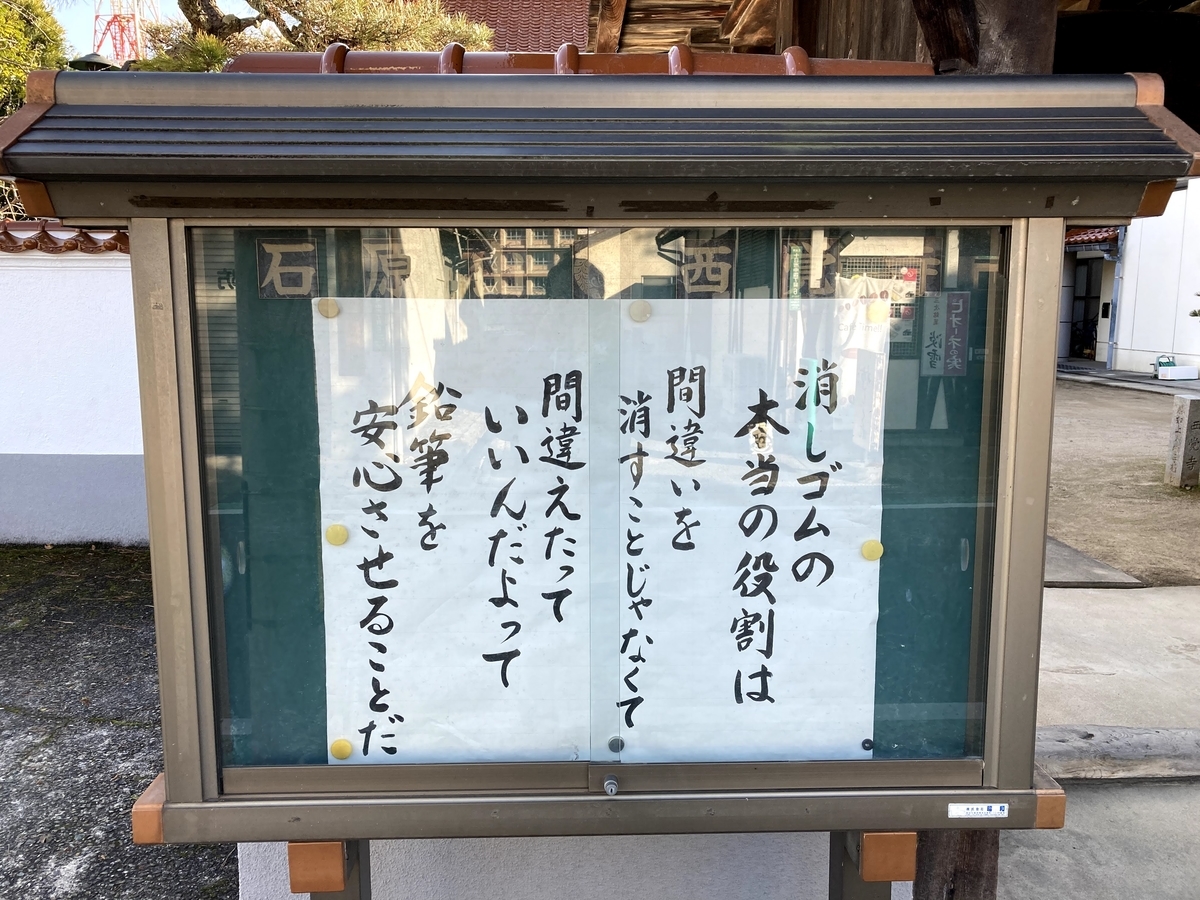 消しゴムの
本当の役割は
間違いを
消すことじゃなくて
間違えたって
いいんだよって
鉛筆を
安心させることだ
石原
西
ビオーネの実
淡雪